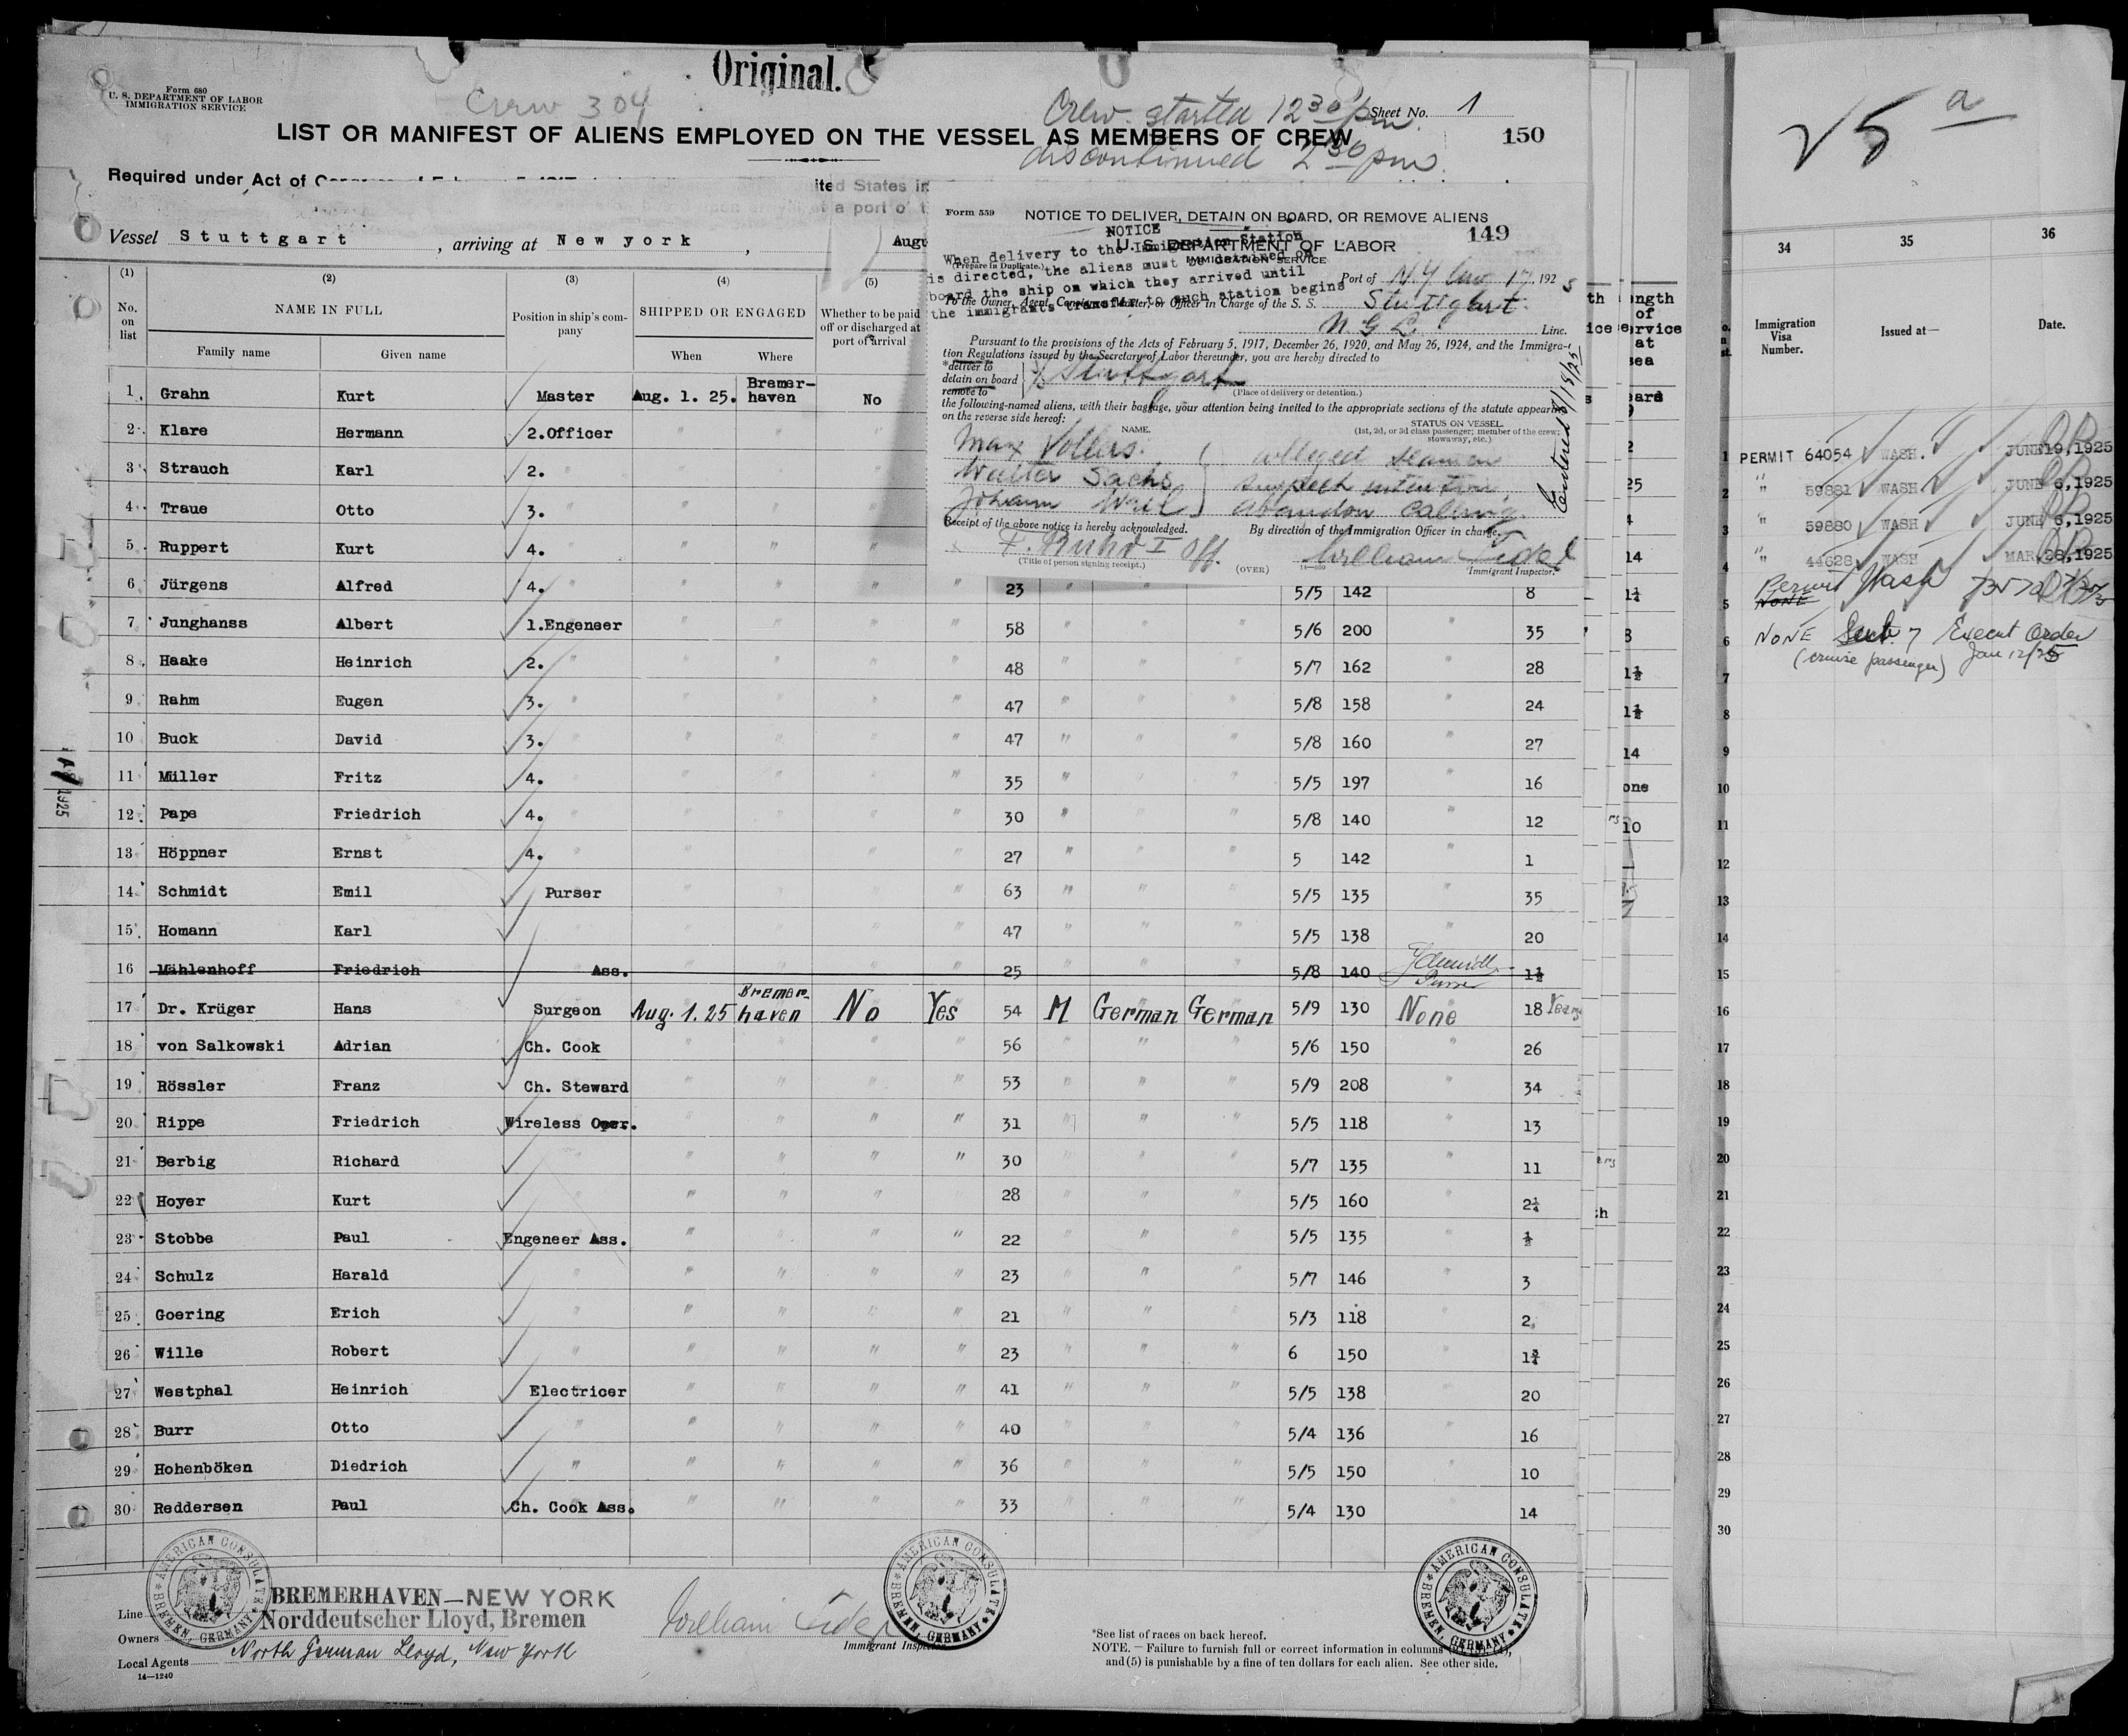 Original.
Form 680
U. S. DEPARTMENT OF LABOR
IMMIGRATION SERVICE
Crew 304
Crew started 12 30 pm.
Sheet No. 1
LIST OR MANIFEST OF ALIENS EMPLOYED ON THE VESSEL AS MEMBERS OF CREW
150
discontinued 2 30 pm.
Required under Act of
ited States in
a port of t
Vessel Stuttgart, arriving at New york, Augu
(1) (2) (3) (4) (5)
No. on list
NAME IN FULL
Family name Given name
Position in ship's company
SHIPPED OR ENGAGED
When Where
Whether to be paid off or discharged at port of arrival
Form 559
NOTICE TO DELIVER, DETAIN ON BOARD, OR REMOVE ALIENS
149
U. S. DEPARTMENT OF LABOR
IMMIGRATION SERVICE
(Prepare in Duplicate.)
NOTICE
When delivery to the Immigration Station
is directed, the aliens must be detained on
board the ship on which they arrived until
the immigrants transfer to such station begins
Port of N.Y. 17, 1925
To the Owner, Agent, Consignee, Master, or Officer in Charge of the S. S. Stuttgart
N G L Line.
Pursuant to the provisions of the Acts of February 5, 1917, December 26, 1920, and May 26, 1924, and the Immigra-
tion Regulations issued by the Secretary of Labor thereunder, you are hereby directed to
*deliver to
detain on board
remove to
Stuttgart
(Place of delivery or detention.)
the following-named aliens, with their baggage, your attention being invited to the appropriate sections of the statute appearing
on the reverse side hereof:
NAME.
STATUS ON VESSEL
(1st, 2d, or 3d class passenger; member of the crew; stowaway, etc.)
Max Vollers. alleged seamen
Walter Sachs suspect intention
Johann abandon calling.
Entered 8/18/25
Receipt of the above notice is hereby acknowledged.
By direction of the Immigration Officer in charge.
I Off.
William Fidel
(Title of person signing receipt.)
(OVER)
Immigrant Inspector.
1 Grahn Kurt Master Aug. 1. 25. Bremer-haven No
2 Klare Hermann 2.Officer " " "
3 Strauch Karl 2. " " " "
4 Traue Otto 3. " " " "
5 Ruppert Kurt 4. " " " "
6 Jürgens Alfred 4. " " " " " 23 " " " 5/5 142 8
7 Junghanss Albert 1.Engeneer " " " " 58 " " " 5/6 200 " 35
8 Haake Heinrich 2. " " " " " 48 " " " 5/7 162 " 28
9 Rahm Eugen 3. " " " " " 47 " " " 5/8 158 " 24
10 Buck David 3. " " " " " 47 " " " 5/8 160 " 27
11 Müller Fritz 4. " " " " " 35 " " " 5/5 197 " 16
12 Pape Friedrich 4. " " " " " 30 " " " 5/8 140 " 12
13 Höppner Ernst 4. " " " " " 27 " " " 5 142 " 1
14 Schmidt Emil Purser " " " " 63 " " " 5/5 135 " 35
15 Homann Karl " " " " " 47 " " " 5/5 138 " 20
16 Mählenhoff Friedrich Ass. " " " " 25 " " " 5/8 140 Schmidt Purser 1½
17 Dr. Krüger Hans Surgeon Aug. 1. 25 Bremer-haven No Yes 54 M German German 5/9 130 None 18 Years
18 von Salkowski Adrian Ch. Cook " " " " 56 " " " 5/6 150 " 26
19 Rössler Franz Ch. Steward " " " " 53 " " " 5/9 208 " 34
20 Rippe Friedrich Wireless Oper. " " " " 31 " " " 5/5 118 " 13
21 Berbig Richard " " " " " 30 " " " 5/7 135 " 11
22 Hoyer Kurt " " " " " 28 " " " 5/5 160 " 2¼
23 Stobbe Paul Engeneer Ass. " " " " 22 " " " 5/5 135 " ½
24 Schulz Harald " " " " " 23 " " " 5/7 146 " 3
25 Goering Erich " " " " " 21 " " " 5/3 118 " 2
26 Wille Robert " " " " " 23 " " " 6 150 " 1¾
27 Westphal Heinrich Electricer " " " " 41 " " " 5/5 138 " 20
28 Burr Otto " " " " " 40 " " " 5/4 136 " 16
29 Hohenböken Diedrich " " " " " 36 " " " 5/5 150 " 10
30 Reddersen Paul Ch. Cook Ass. " " " " 33 " " " 5/4 130 " 14
1925
AMERICAN CONSULATE BREMEN, GERMANY
AMERICAN CONSULATE BREMEN, GERMANY
AMERICAN CONSULATE BREMEN, GERMANY
Line BREMERHAVEN—NEW YORK
Owners Norddeutscher Lloyd, Bremen
Local Agents North German Lloyd, New York
14—1240
William Fidel
Immigrant Inspector
*See list of races on back hereof.
NOTE.—Failure to furnish full or correct information in columns
and (5) is punishable by a fine of ten dollars for each alien. See other side.
ength of service at sea
25
4
14
1¼
8
1½
1½
14
one
10
25 a
34 35 36
Immigration Visa Number. Issued at— Date.
1 PERMIT 64054 WASH. JUNE 19, 1925
2 " 59881 WASH JUNE 6, 1925
3 " 59880 WASH JUNE 6, 1925
4 " 44628 WASH MAR 28, 1925
5 Permit Wash
NONE
6 NONE Sect. 7 Execut Order
(cruise passenger) Jan 12/25
7
8
9
10
11
12
13
14
15
16
17
18
19
20
21
22
23
24
25
26
27
28
29
30